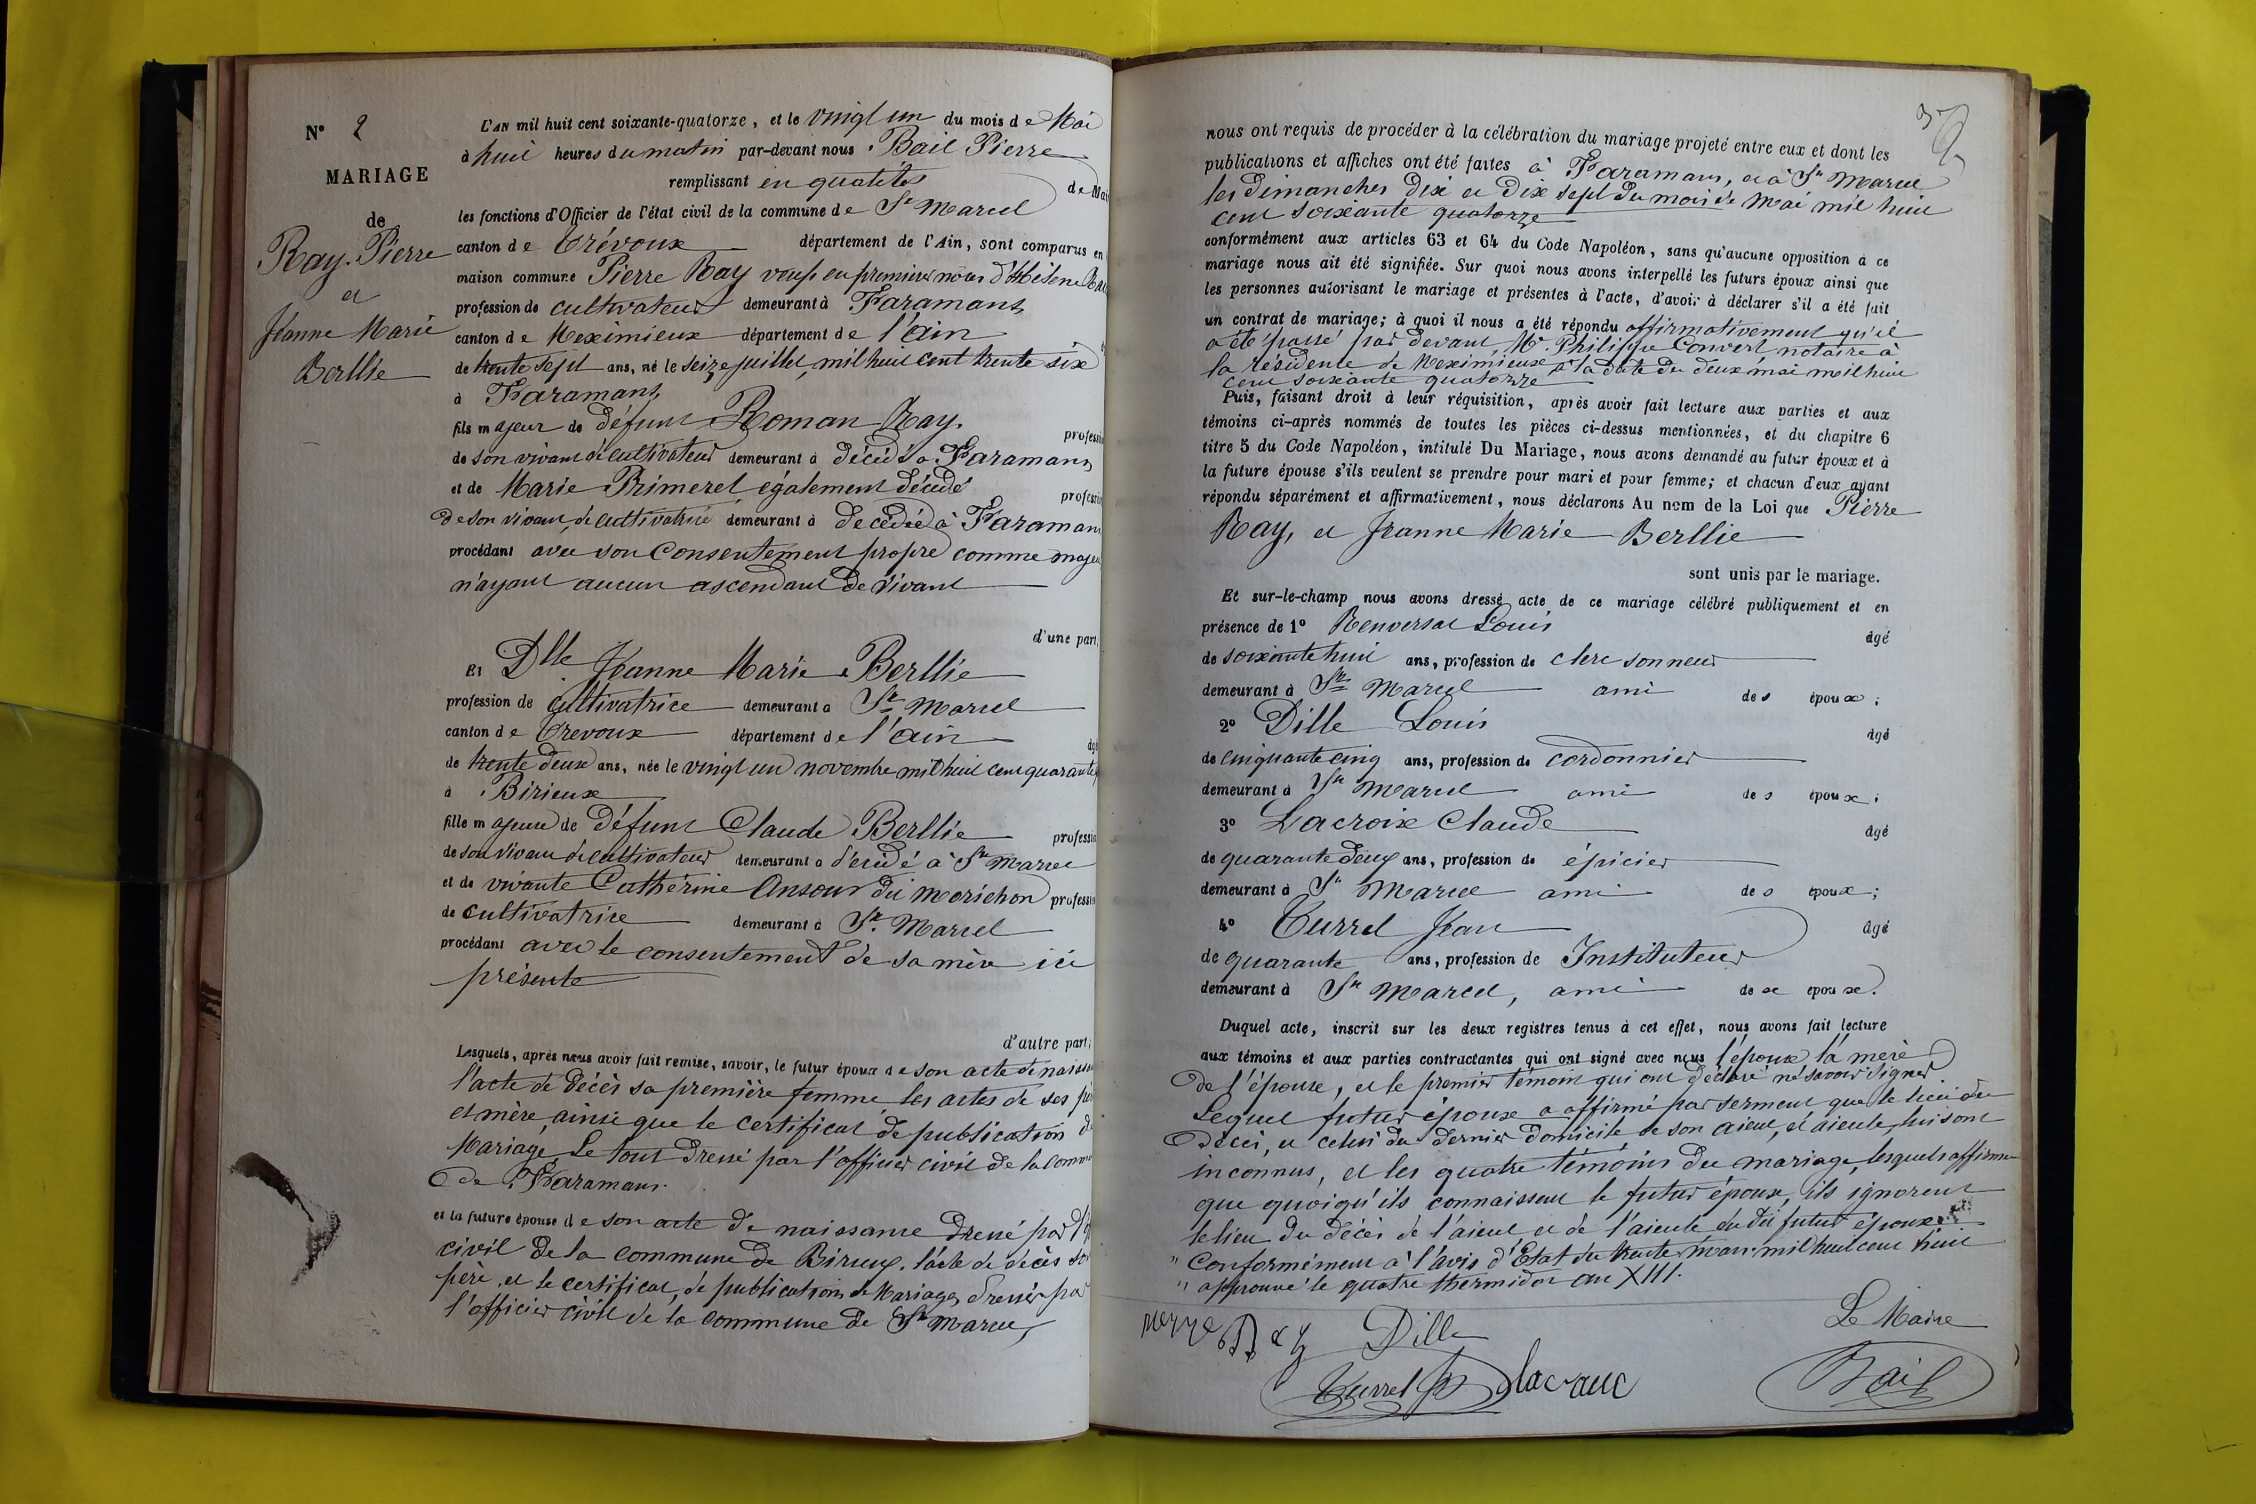 N° 2
MARIAGE
de
Ray Pierre
et
Jeanne Marie
Berllie
L'AN mil huit cent soixante-quatorze, et le vingt un du mois de Mai
à huit heures du matin par-devant nous Bail Pierre
remplissant en qualité de Mai
les fonctions d'Officier de l'état civil de la commune de St Marcel
canton de Trévoux département de l'Ain, sont comparus en
maison commune Pierre Ray veuf en premières noces d'Hélène
profession de cultivateur demeurant à Faramans
canton de Meximieux département de l'ain
de trente sept ans, né le seize juillet mil huit cent trente six
à Faramans
fils majeur de défunt Roman Ray. professi
de son vivant de cultivateur demeurant à décédé à Faramans
et de Marie Primerel également décédé professi
de son vivant de cultivatrice demeurant à decédée à Faramans
procédant avec son consentement propre comme majeu
n'ayant aucun ascendant de vivant
d'une part,
Et Dlle Jeanne Marie Berllie
profession de cultivatrice demeurant à St Marcel
canton de Trevoux département de l'ain agé
de trente deux ans, née le vingt un novembre mil huit cent quarante
à Birieux
fille majeure de défunt Claude Berllie professi
de son vivant de cultivateur demeurant à décédé à St Marcel
et de vivante Cathérine Ansour dit Morichon professi
de cultivatrice demeurant à St Marcel
procédant avec le consentement de sa mère ici
présente
d'autre part;
Lesquels, après nous avoir fait remise, savoir, le futur époux de son acte de naissa
l'acte de décès sa première femme les actes de ses pè
et mère, ainsi que le certificat de publication d
Mariage, le tout dressé par l'officier civil de la commu
de Faramans.
et la future épouse de son acte de naissance dressé par l'
civil de la commune de Birieux, l'acte de décès so
père, et le certificat de publications de Mariages dressés par
l'officier civil de la commune de St Marcel
nous ont requis de procéder à la célébration du mariage projeté entre eux et dont les
publications et affiches ont été faites à Faramans, et à St Marcel
les dimanches dix et dix sept du mois de mai mil huit
cent soixante quatorze
conformément aux articles 63 et 64 du Code Napoléon, sans qu'aucune opposition à ce
mariage nous ait été signifiée. Sur quoi nous avons interpellé les futurs époux ainsi que
les personnes autorisant le mariage et présentes à l'acte, d'avoir à déclarer s'il a été fait
un contrat de mariage; à quoi il nous a été répondu affirmativement qu'il
a été passé par devant Me Philippe Convert, notaire à
la résidence de Meximieux, à la date du deux mai mil huit
cent soixante quatorze
Puis, faisant droit à leur réquisition, après avoir fait lecture aux parties et aux
témoins ci-après nommés de toutes les pièces ci-dessus mentionnées, et du chapitre 6
titre 5 du Code Napoléon, intitulé Du Mariage, nous avons demandé au futur époux et à
la future épouse s'ils veulent se prendre pour mari et pour femme; et chacun d'eux ayant
répondu séparément et affirmativement, nous déclarons Au nom de la Loi que Pierre
Ray, et Jeanne Marie Berllie
sont unis par le mariage.
Et sur-le-champ nous avons dressé acte de ce mariage célébré publiquement et en
présence de 1° Renversat Louis agé
de soixante huit ans, profession de clerc sonneur
demeurant à St Marcel ami des époux;
2° Dille Louis agé
de cinquante cinq ans, profession de cordonnier
demeurant à St Marcel ami des époux;
3° Lacroix Claude agé
de quarante deux ans, profession de épicier
demeurant à St Marcel ami des époux;
4° Turrel Jean agé
de quarante ans, profession de Instituteur
demeurant à St Marcel, ami de époux.
Duquel acte, inscrit sur les deux registres tenus à cet effet, nous avons fait lecture
aux témoins et aux parties contractantes qui ont signé avec nous l'épouse la mère
de l'épouse, et le premier témoin qui ont déclaré ne savoir signer
Lequel futur époux a affirmé par serment que le lieu du
décès, et celui du dernier domicile de son aieul, et aieule lui sont
inconnus, et les quatre témoins du mariage, lesquels affirme
que quoiqu'ils connaissent le futur époux, ils ignorent
le lieu du décès de l'aieul et de l'aieule du dit futur époux.
" Conformément à l'avis d'Etat du trente mars mil huit cent huit
" approuvé le quatre thermidor an XIII.
Le Maire
pierre Ray Dille
Turrel Jn Bail